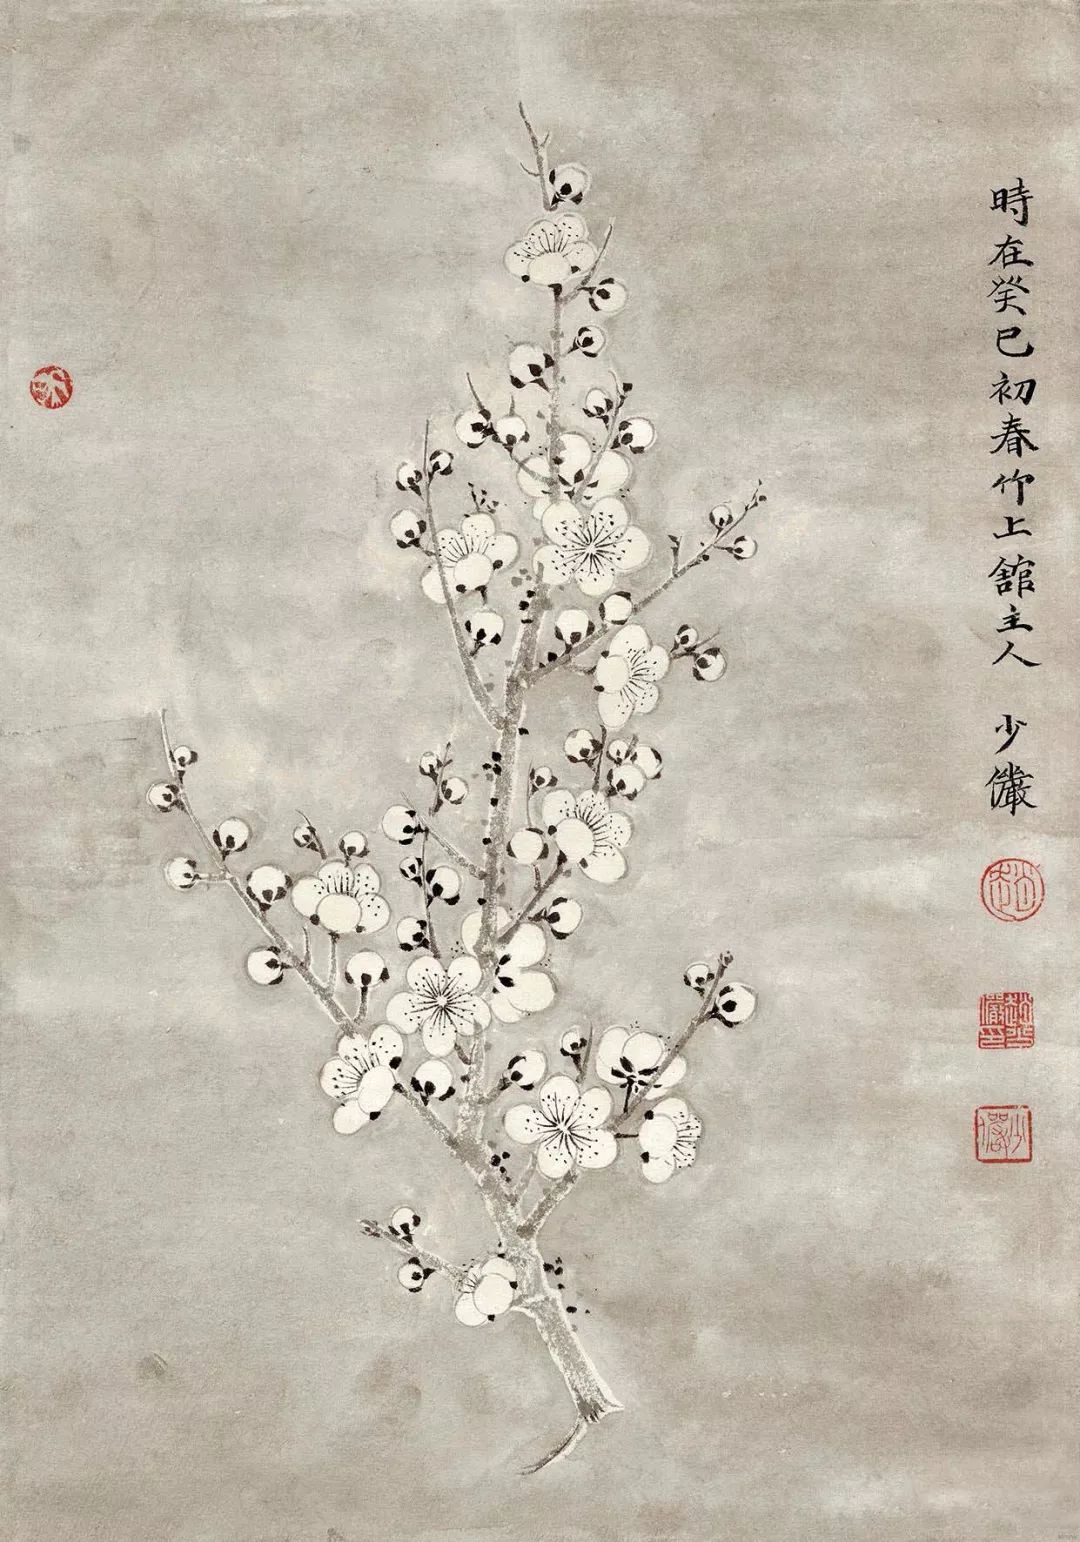 時在癸巳初春竹上舘主人 少儼